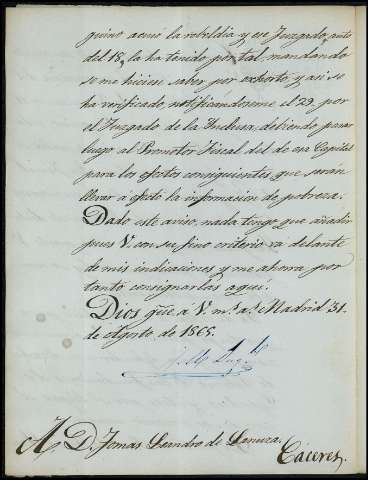 quino acusó la rebeldía y ese Juzgado, auto
del 18, la ha tenido por tal, mandando
se me hiciera saber por exhorto, y asi se
ha verificado, notificándoseme el 29, por
el Juzgado de la Inclusa, debiendo pasar
luego al Promotor Fiscal del de esa Capital
para los efectos consiguientes que serán
llevar á efecto la informacion de pobreza.
Dado este aviso, nada tengo que añadir
pues V. con su fino criterio va delante
de mis indicaciones y me ahorra por
tanto consignarlas aqui.
Dios gũe á V. m.s a.s Madrid 31.
de Agosto de 1865.
A D. Tomas Leandro de Lanuza.
Cáceres.